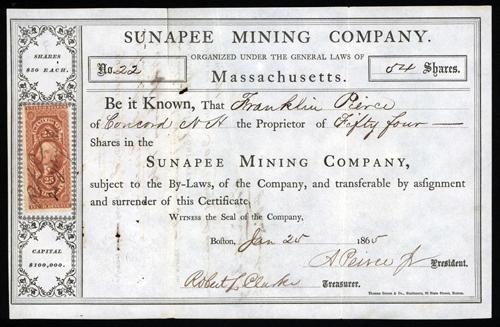 SUNAPEE MINING COMPANY.
SHARES
$50 EACH.
ORGANIZED UNDER THE GENERAL LAWS OF
No. 22
54 Shares.
Massachusetts.
Be it Known, That Franklin Pierce
of Concord N H the Proprietor of Fifty four
Shares in the
SUNAPEE MINING COMPANY,
subject to the By-Laws, of the Company, and transferable by assignment
and surrender of this Certificate,
WITNESS the Seal of the Company,
25
25
CAPITAL
$100,000.
Boston, Jan 25 1865
A Peirce Jr President.
Robert L Clarke Treasurer.